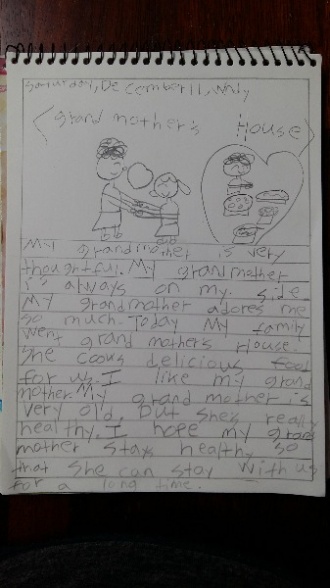 Saturday, December 11,
<Grand mother's House>
My grandmother is very
thoughtful. My grandmother
is always on my side.
My grandmother adores me
so much. Today My family
went grand mother's House.
She cooks delicious food
for us. I like my grand
mother. My grand mother is
very old, but she's really
healthy. I hope my grand
mother stays healthy so
that she can stay with us
for a long time.